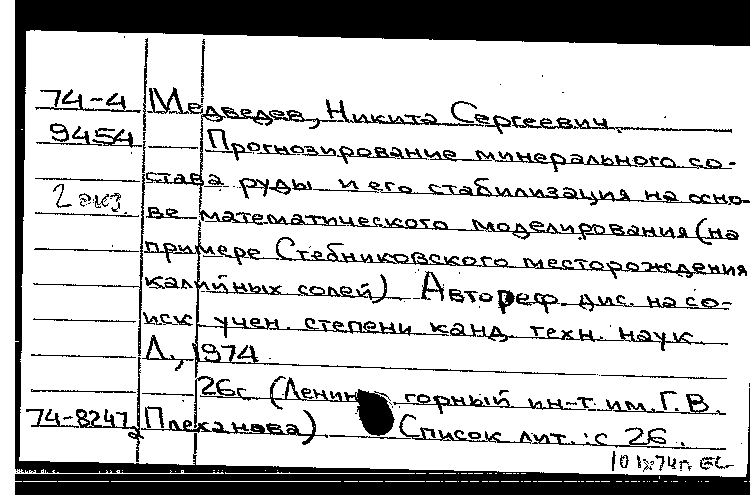 74-4 Медведев, Никита Сергеевич.
9454 Прогнозирование минерального со-
става руды и его стабилизация на осно-
2 экз. ве математического моделирования (на
примере Стебниковского месторождения
калийных солей). Автореф. дис. на со-
иск. учен. степени канд. техн. наук.
Л., 1974.
26с. (Ленингр. горный ин-т им. Г.В.
74-8247 Плеханова). Список лит.: с 26.